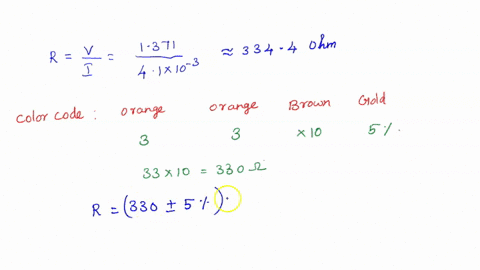 R = V/I = 1.371/4.1×10⁻³ ≈ 334.4 Ohm
Color code : Orange Orange Brown Gold
3 3 ×10 5%.
33×10 = 330 Ω
R = (330 ± 5%).